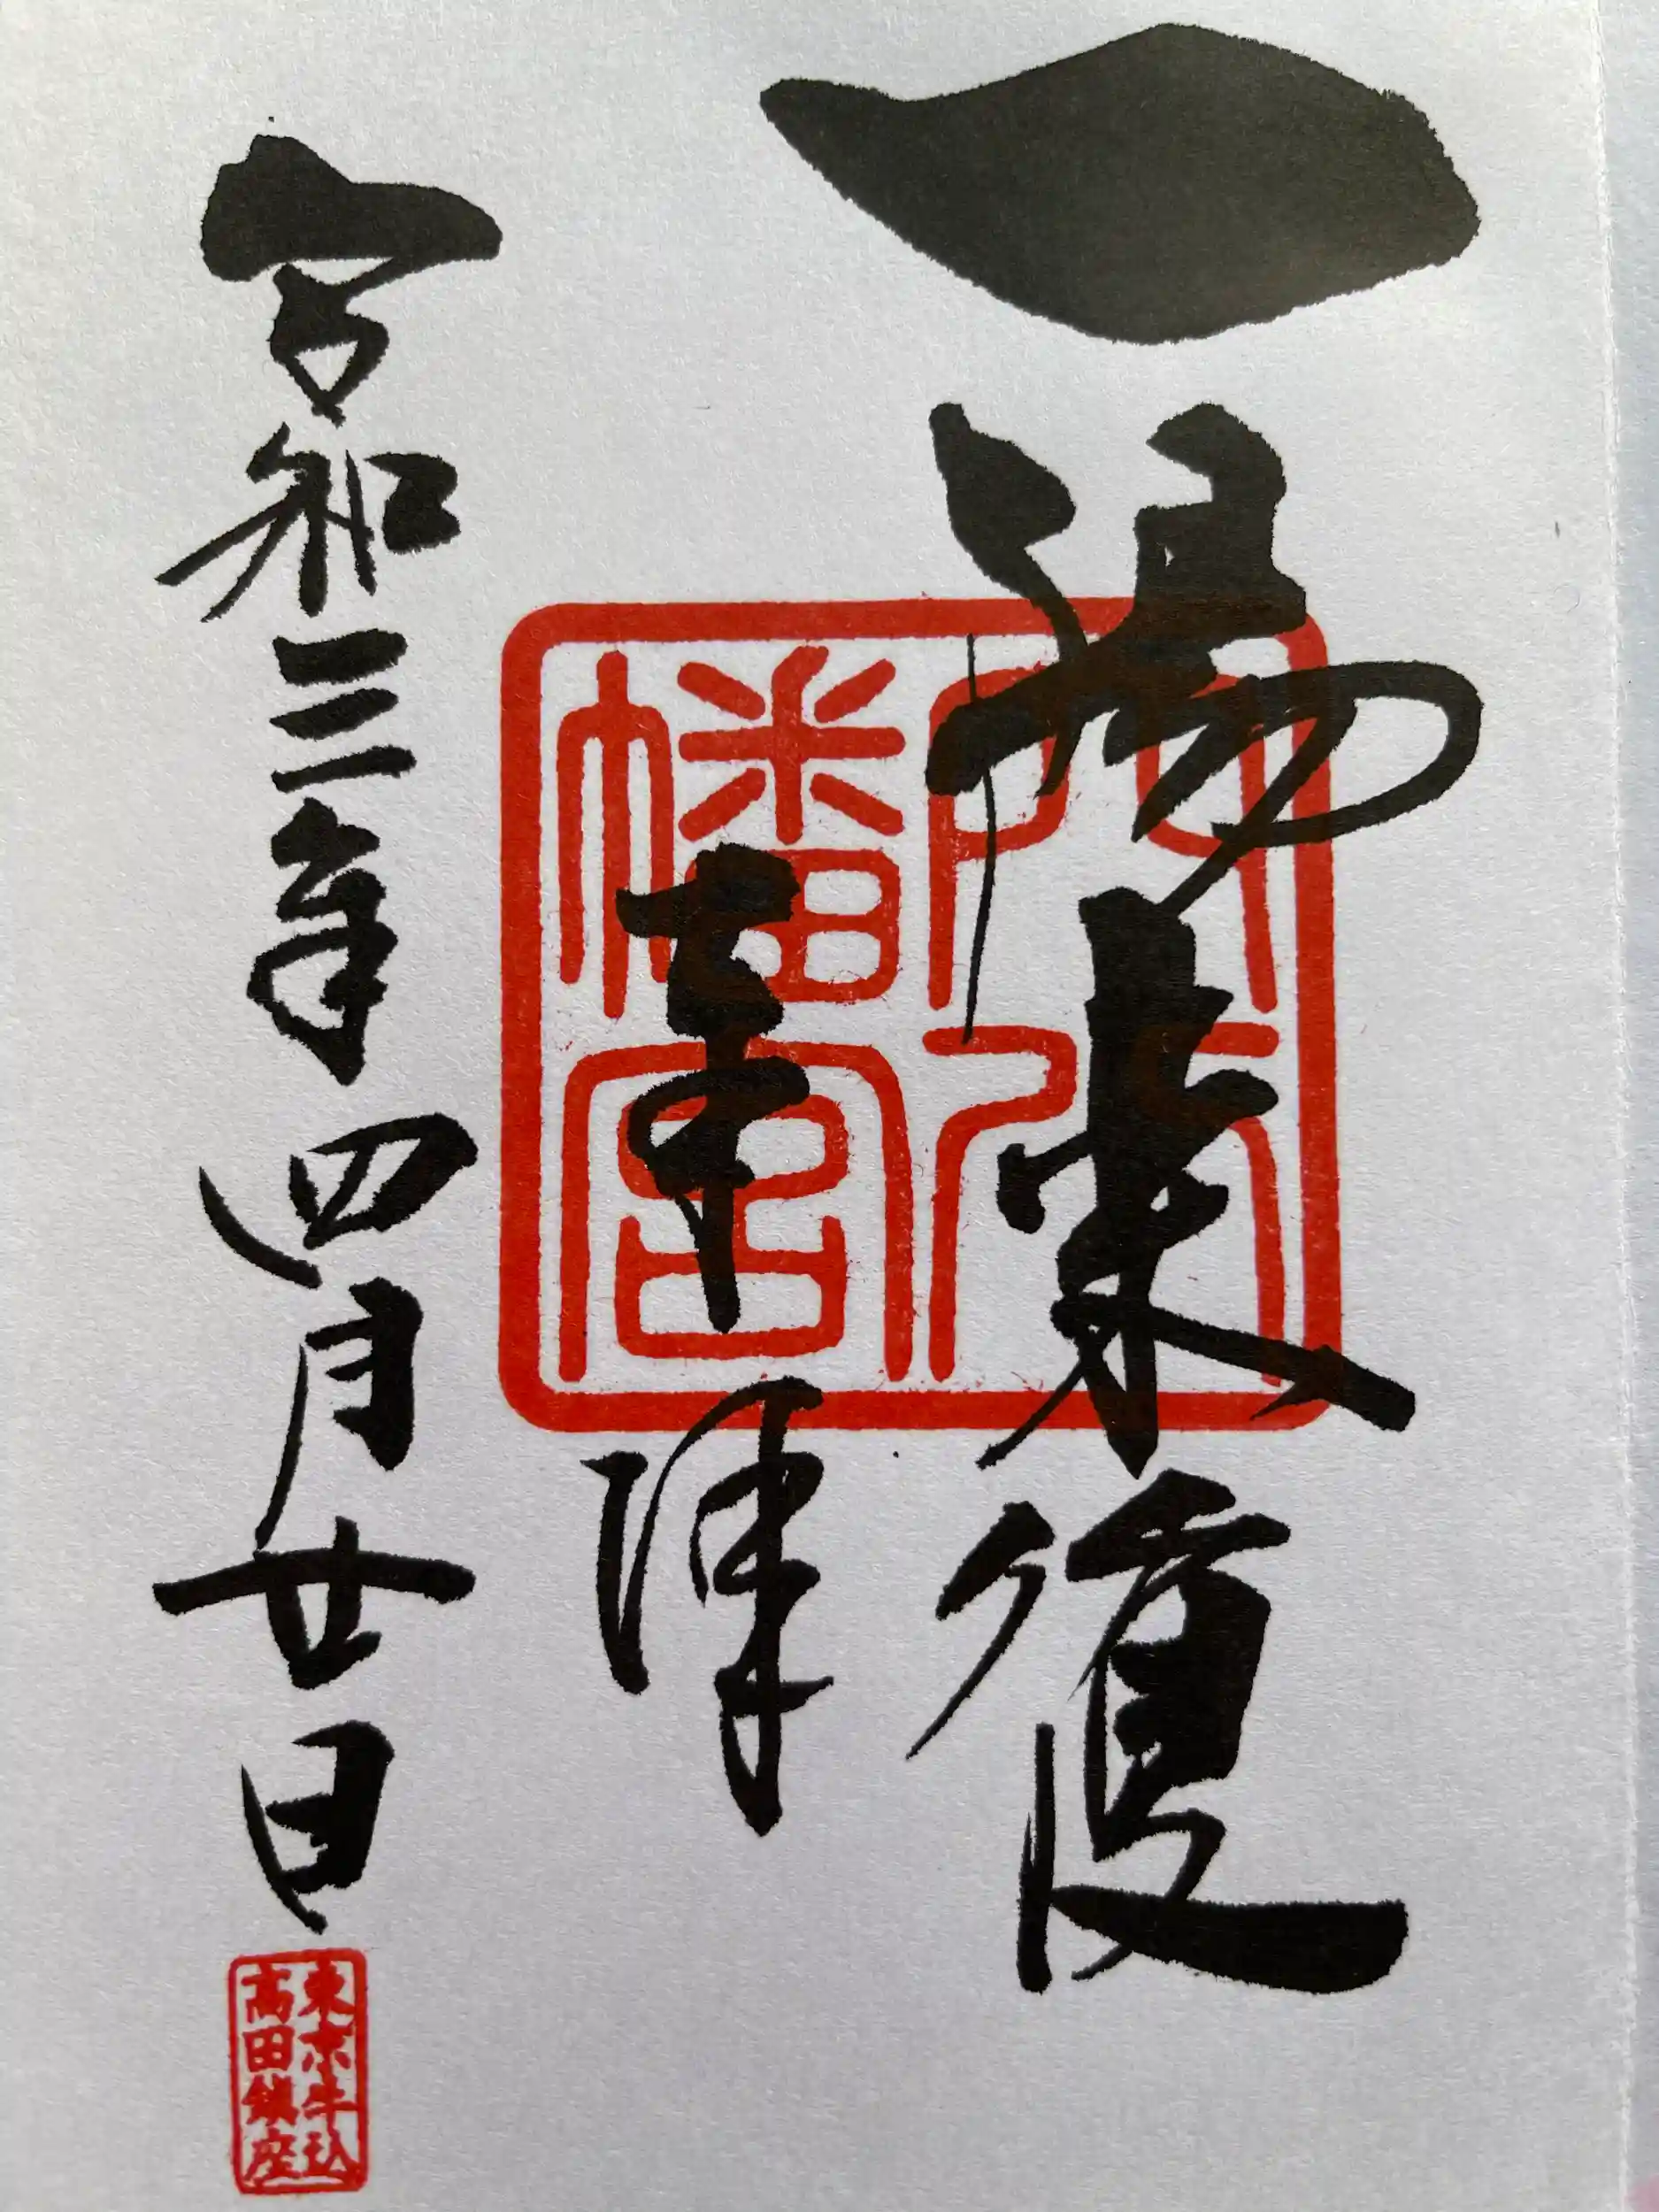 一陽来復
奉拝
令和三年四月廿日
穴八
幡宮
東京牛込
高田鎮座